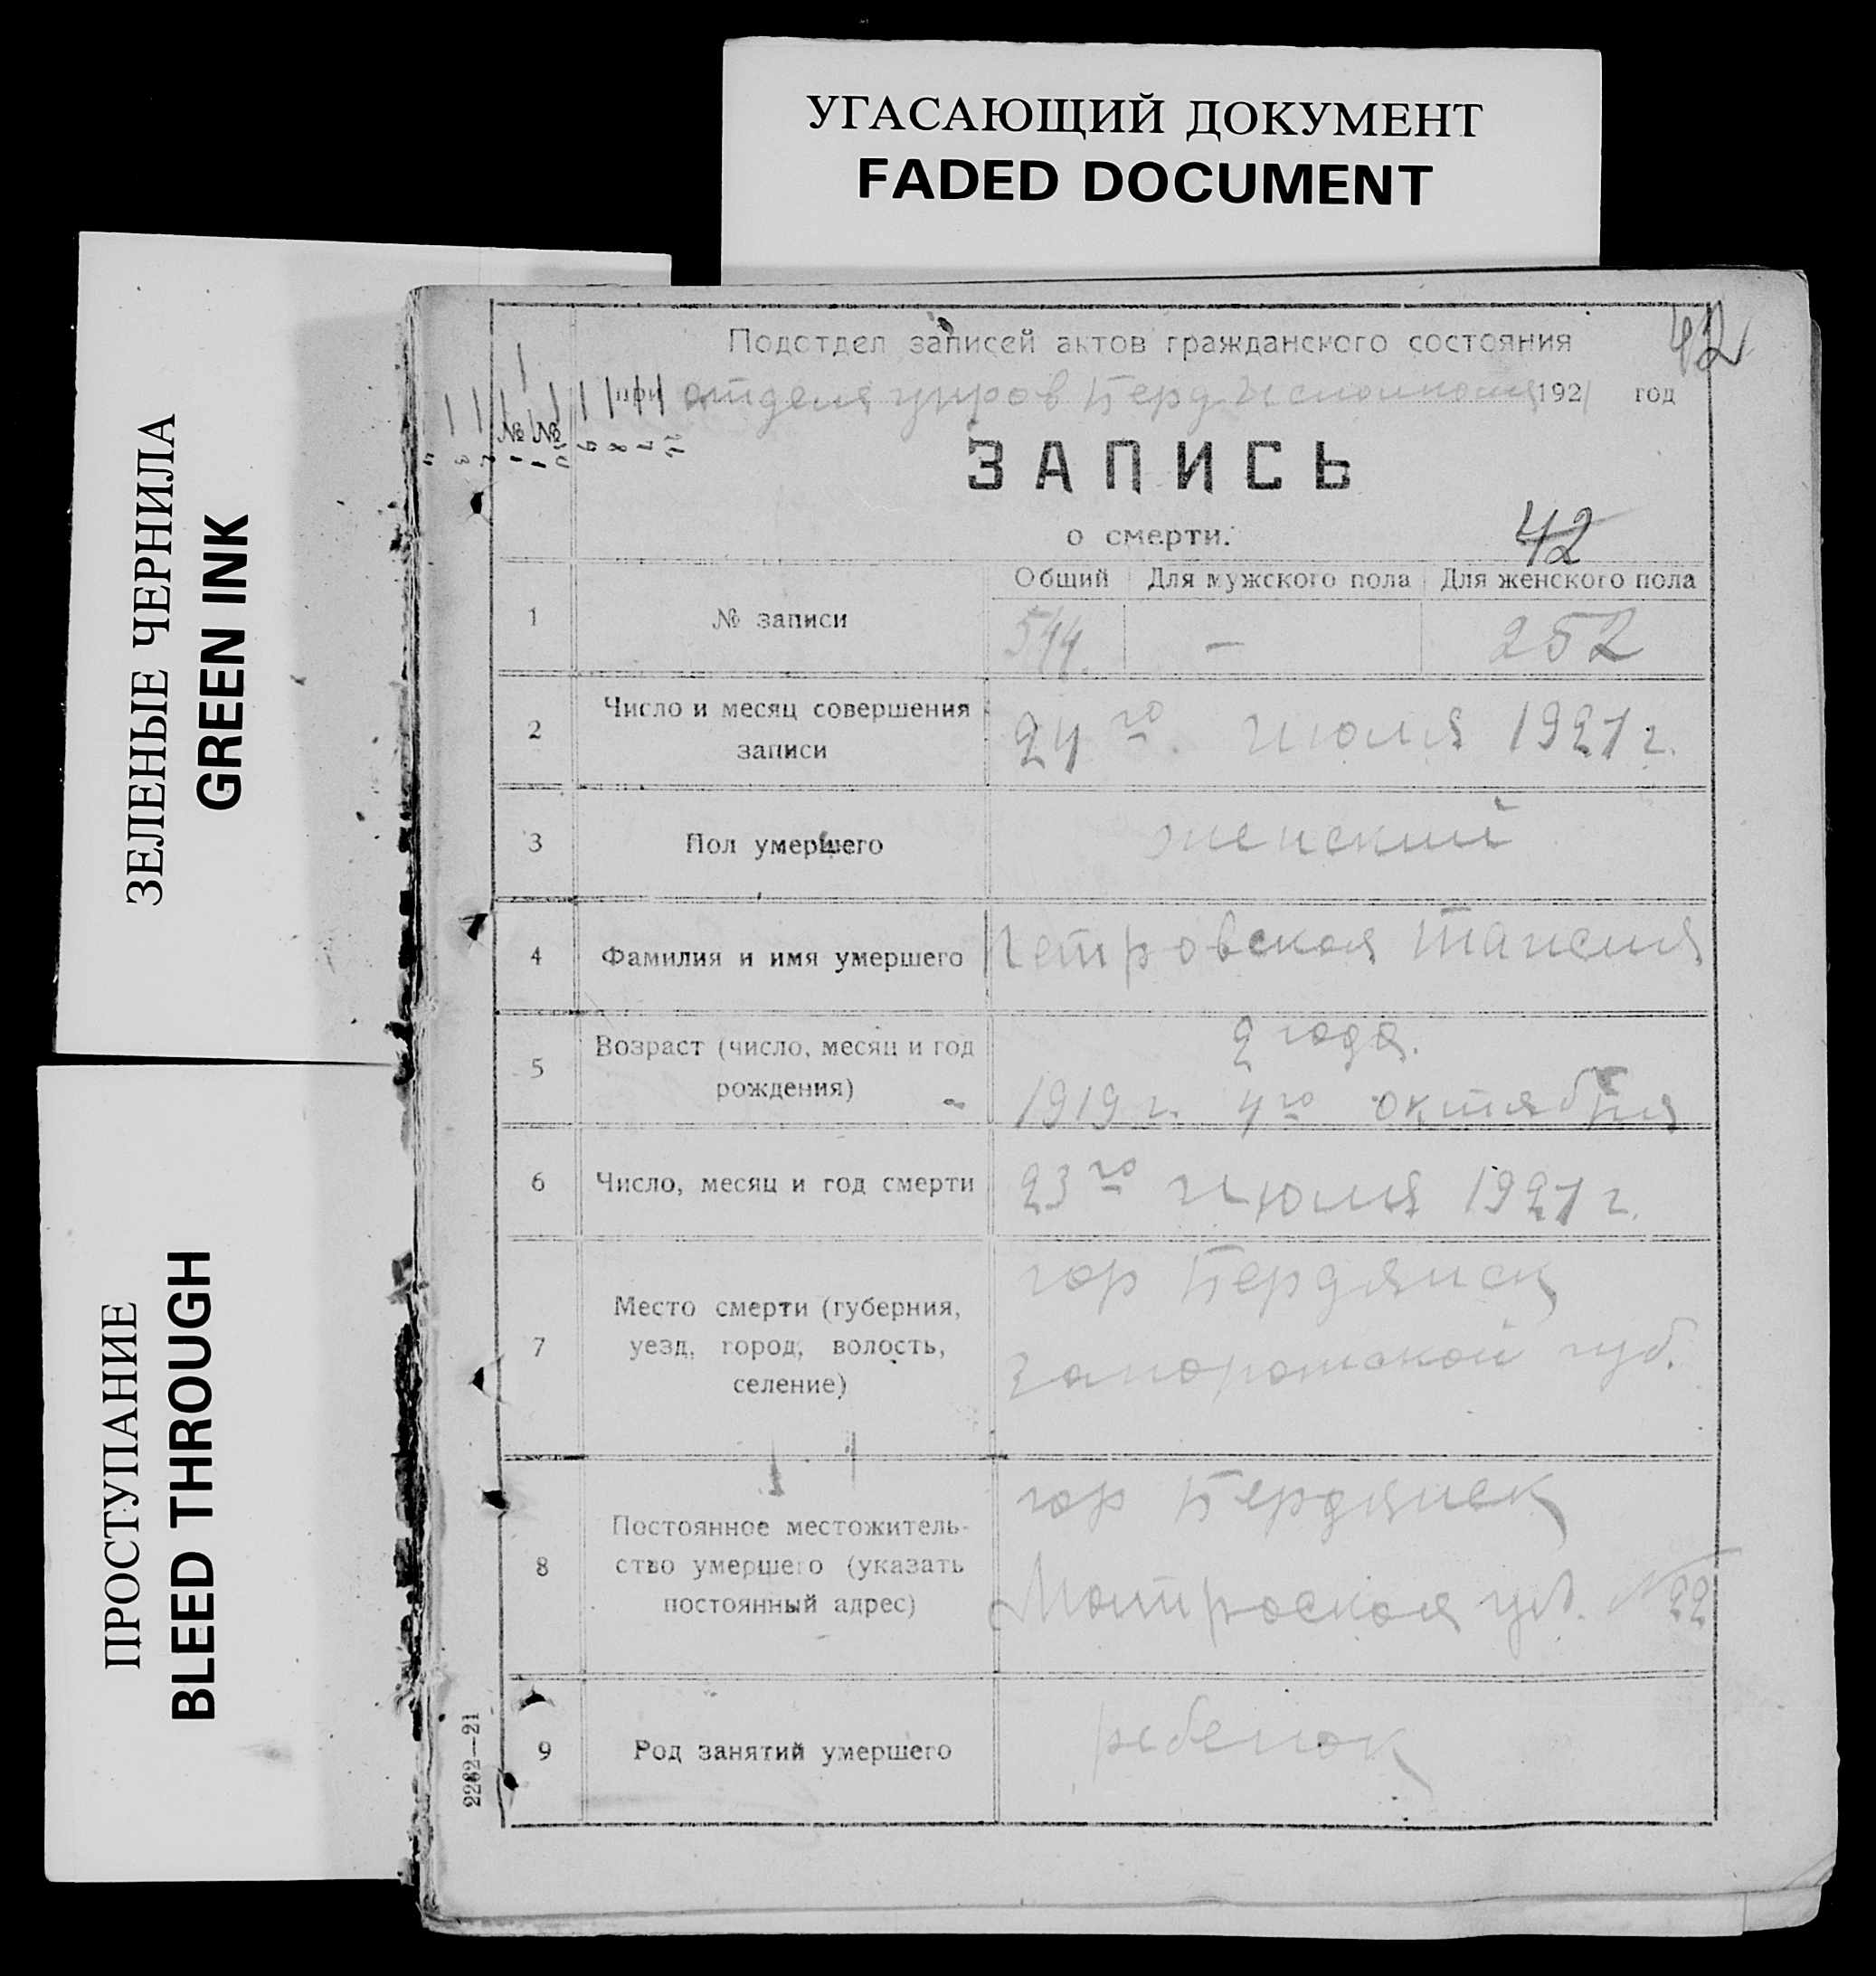 УГАСАЮЩИЙ ДОКУМЕНТ
FADED DOCUMENT
ЗЕЛЕНЫЕ ЧЕРНИЛА
GREEN INK
ПРОСТУПАНИЕ
BLEED THROUGH
42
Подотдел записей актов гражданского состояния
отдела управ Берд Исполкома 1921 год
ЗАПИСЬ
о смерти.
42
Общий Для мужского пола Для женского пола
1 № записи 544. — 252
2 Число и месяц совершения
записи
24го. июля 1921 г.
3 Пол умершего женский
4 Фамилия и имя умершего Петровская Таисия
5 Возраст (число, месяц и год
рождения)
2 года.
1919 г. 4го октября
6 Число, месяц и год смерти 23го июля 1921 г.
7 Место смерти (губерния,
уезд, город, волость,
селение)
гор Бердянск
Запорожской губ.
8 Постоянное местожитель-
ство умершего (указать
постоянный адрес)
гор Бердянск
Матроская ул. № 22
9 Род занятий умершего ребенок
2282—21